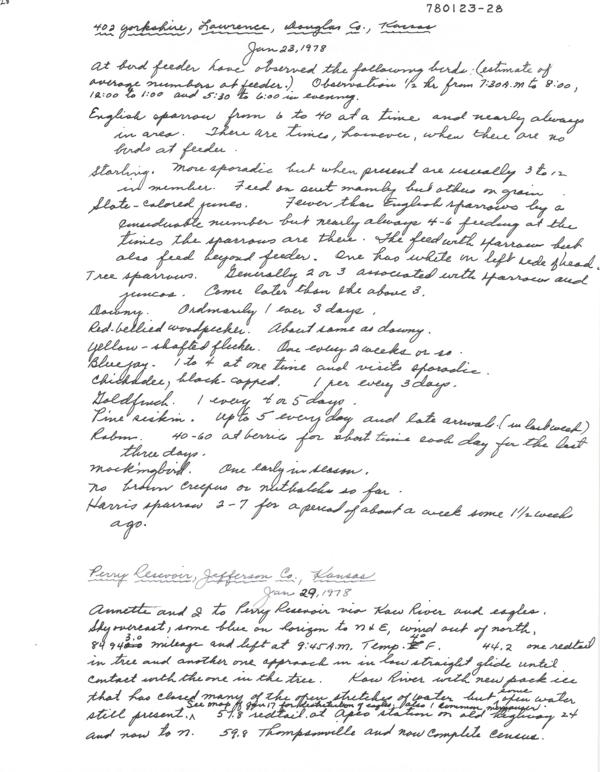 780123-28
402 Yorkshire, Lawrence, Douglas Co., Kansas
Jan 23, 1978
At bird feeder have observed the following birds: (estimate of
average numbers at feeder.) Observation 1/2 hr from 7:30 A.M to 8:00,
12:00 to 1:00 and 5:30 to 6:00 in evening.
English sparrow from 6 to 40 at a time and nearly always
in area. There are times, however, when there are no
birds at feeder.
Starling. More sporadic but when present are usually 3 to 12
in number. Feed on suet mainly but others on grain.
Slate-colored juncos. Fewer than English sparrows by a
considerable number but nearly always 4-6 feeding at the
times the sparrows are there. The feed with sparrow but
also feed beyond feeder. One has white on left side of head.
Tree sparrows. Generally 2 or 3 associated with sparrow and
juncos. Come later than the above 3.
Downy. Ordinarily 1 ever 3 days.
Red-bellied woodpecker. About same as downy.
Yellow-shafted flicker. One every 2 weeks or so.
Bluejay. 1 to 4 at one time and visits sporadic.
Chickadee, black-capped. 1 per every 3 days.
Goldfinch. 1 every 4 or 5 days.
Pine siskin. Up to 5 every day and late arrivals. (in last week)
Robin. 40-60 at berries for short time each day for the last
three days.
Mockingbird. One early in season.
No brown creepers or nuthatches so far.
Harris sparrow 2-7 for a period of about a week some 1 1/2 weeks
ago.
Perry Resevoir, Jefferson Co., Kansas
Jan 29, 1978
Annette and I to Perry Resevoir via Kaw River and eagles.
Sky overcast, some blue on horizon to N & E, wind out of north,
mileage and left at 9:45 A.M. Temp. F. 44.2 one redtail
in tree and another one approach in in low straight glide until
contact with the one in the tree. Kaw River with new pack ice
that has closed many of the open stretches of water but some open water
still present. See map of Jan 17 for distribution of eagles, also 1 common merganser.
57.8 redtail at Apco station on old highway 24
and now to N. 59.8 Thompsonville and now complete census.